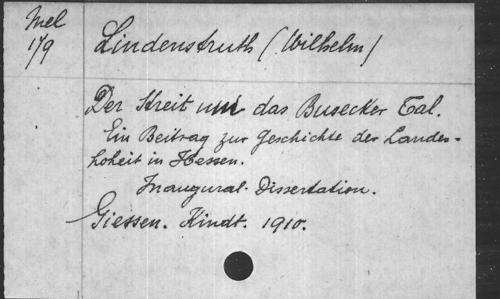 Mel
179
Lindenstruth (Wilhelm)
Der Streit um das Busecker Tal.
Ein Beitrag zur Geschichte der Landes-
hoheit in Hessen.
Inaugural-Dissertation.
Giessen. Kindt. 1910.